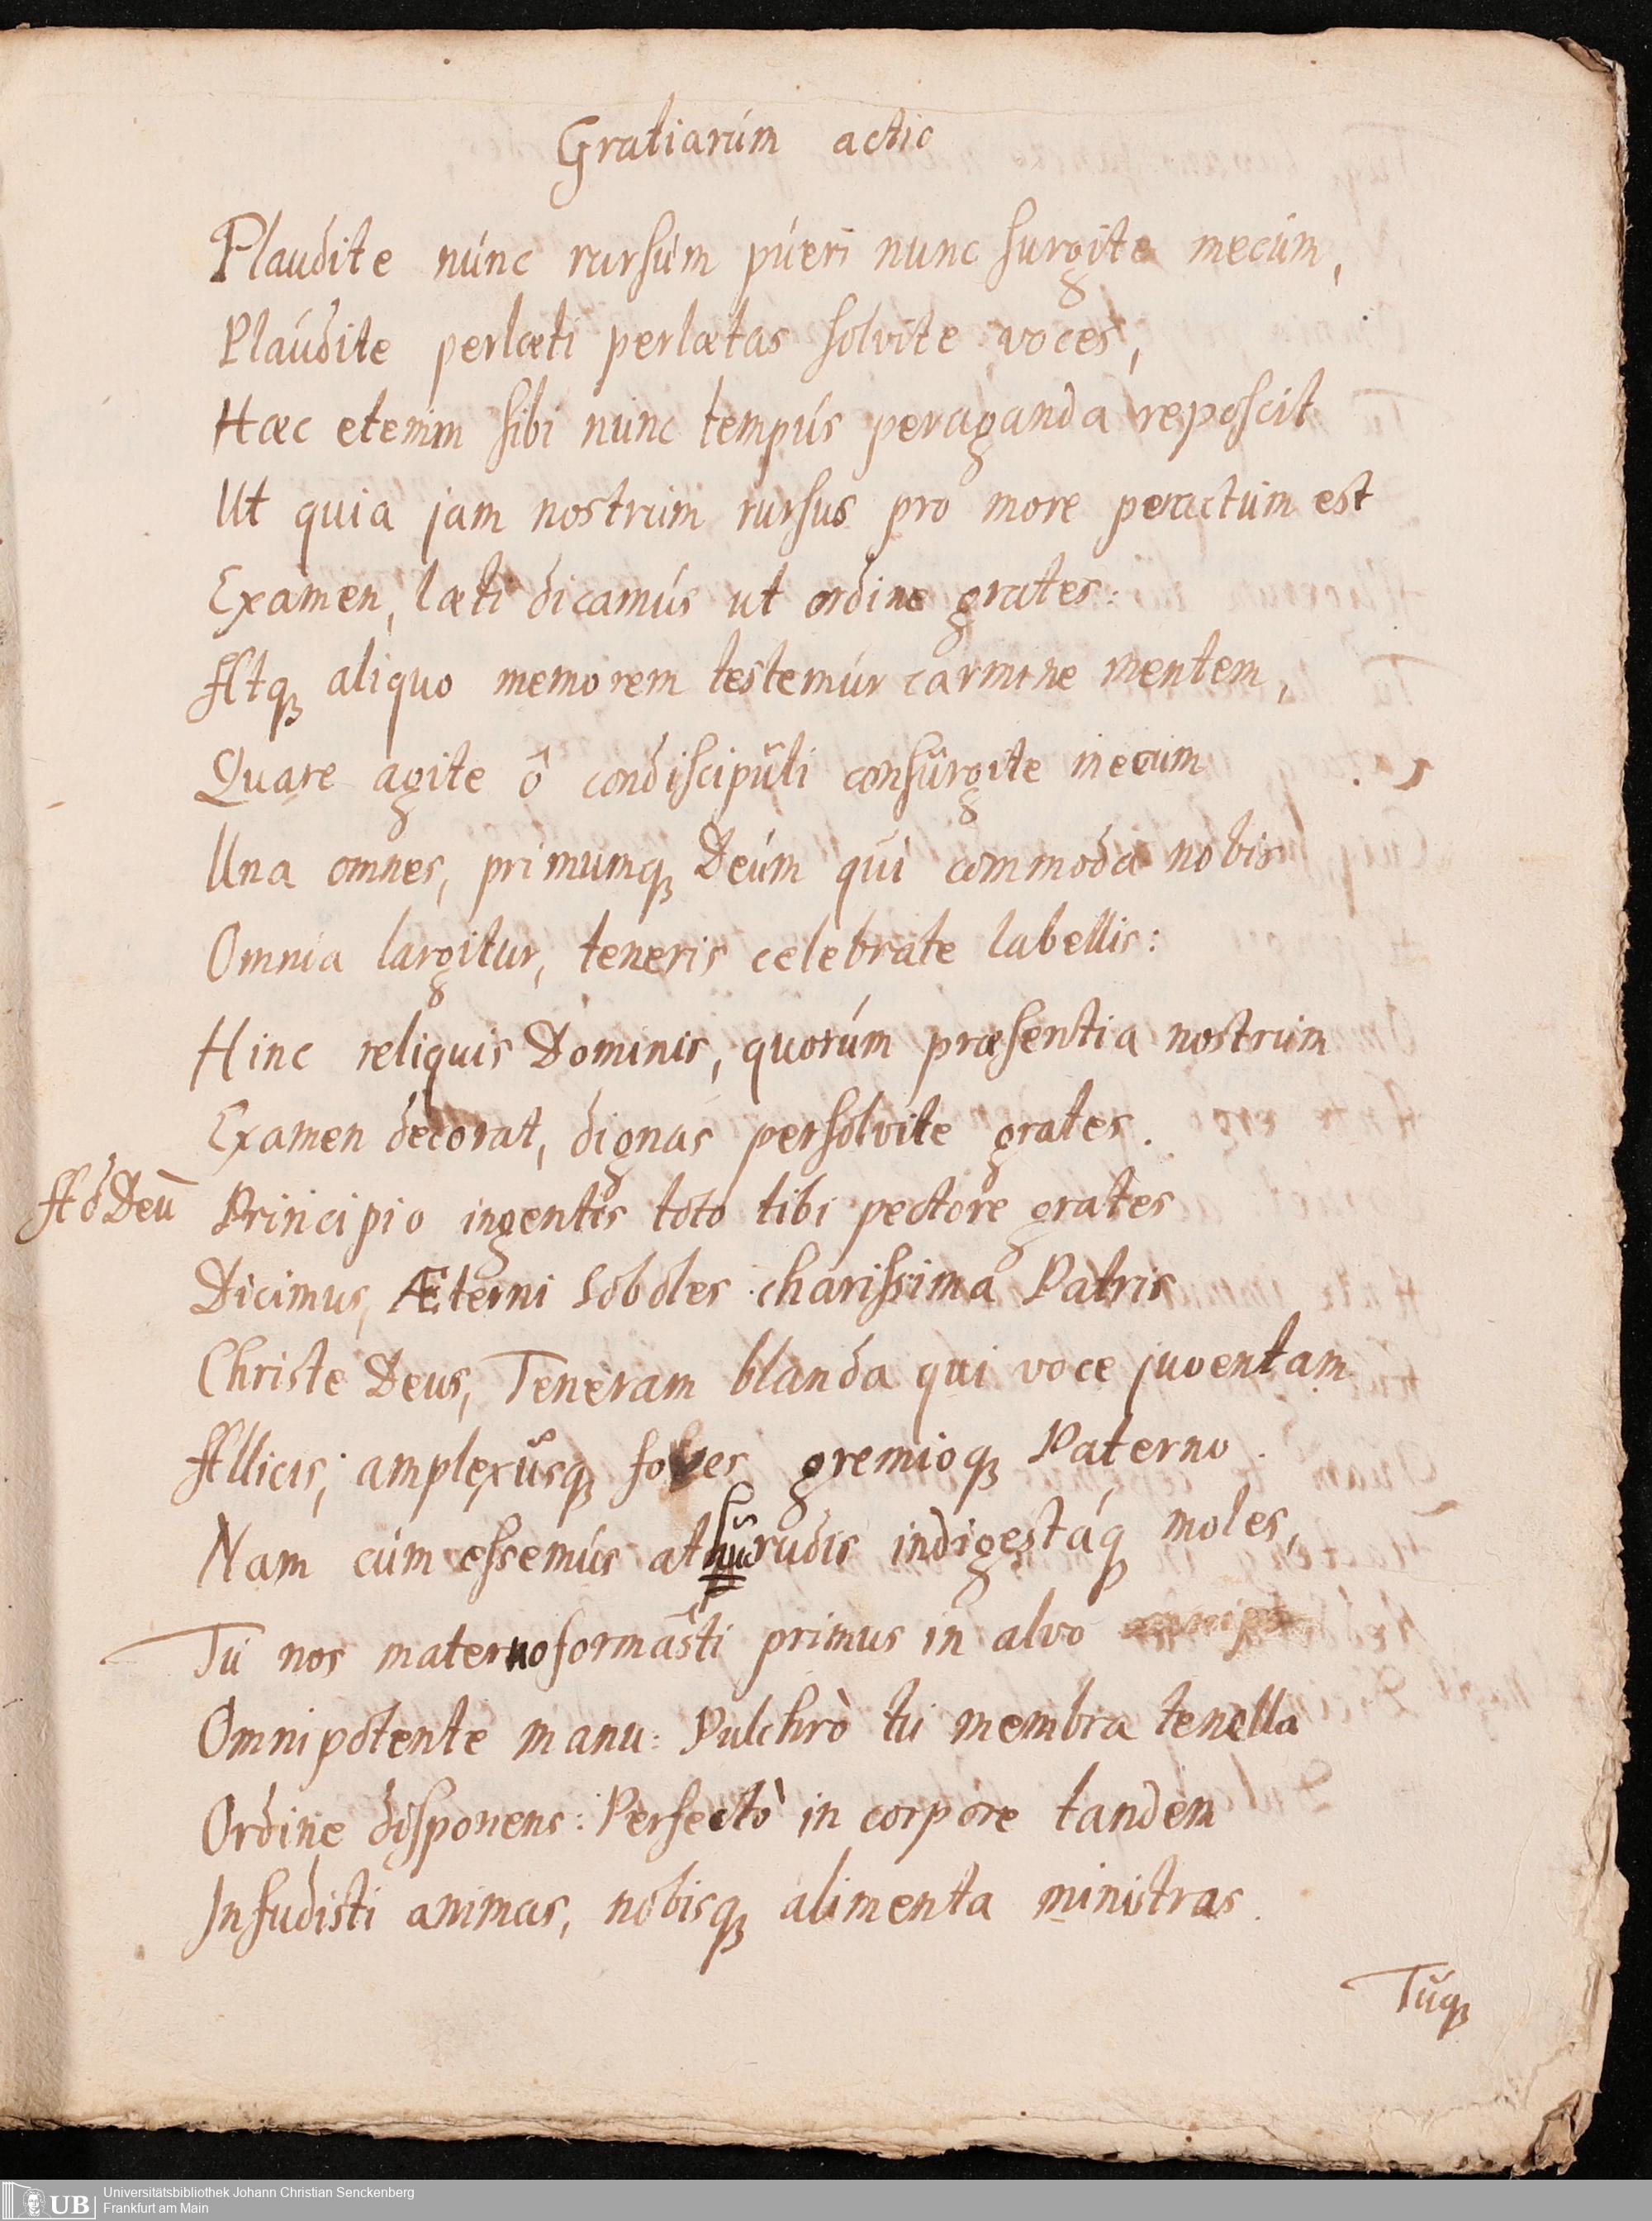 Gratiarúm actio
Plaudite núnc rursúm púeri nunc surgite mecúm,
Plaúdite perlæti perlætas solvite voces,
Hæc etenim sibi núnc tempús peraganda reposcit
Ut quia jam nostrúm rursus pro more peractúm est
Examen, læti dicamús ut ordine grates:
Atq; aliquo memorem testemúr carmine mentem,
Quare agite ô condiscipŭli consŭrgite mecúm
Una omnes, primumq; Deúm qúi commoda nobis
Omnia largitur, teneris celebrate labellis:
Hinc reliquis Dominis, quorúm præsentia nostrúm
Examen decorat, dignas persolvite grates.
Ad Deū Principio ingentes toto tibi pectore grates
Dicimus, Æterni soboles charissima Patris
Christe Deus, Teneram blanda qui voce juventam
Allicis; amplexŭsq; foves gremioq; Paterno.
Nam cúm essemús adhŭc rudis indigestáq moles,
Tú nos materno formâsti primus in alvo
Omnipotente manu: Pulchrò tú membra tenella
Ordine disponens: Perfectò in corpore tandem
Infudisti animas, nobisq; alimenta ministras.
Tŭq;
Universitätsbibliothek Johann Christian Senckenberg
Frankfurt am Main
UB